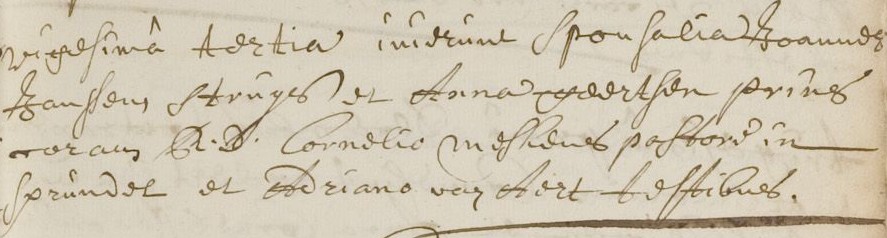 vigesimâ tertia inierunt sponsalia Joannes
Janssen Struijs et Anna geertsen prins
coram R. D. Cornelio pastore in
sprundel et Adriano van Aert testibus.